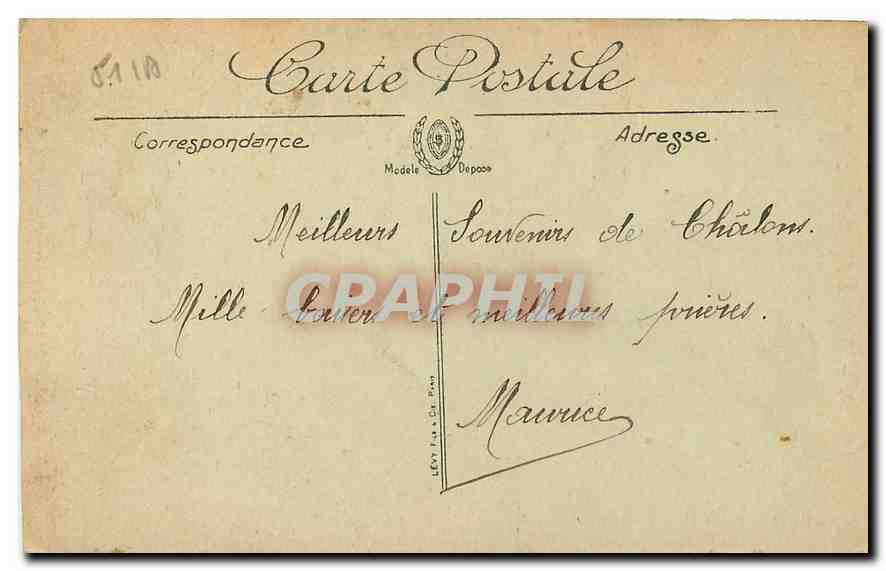 Carte Postale
Correspondance
Adresse.
Modèle Déposé
Meilleurs Souvenirs de Châlons.
CRAPHIL
Mille baisers et meilleures prières.
LÉVY Fils & Cie, Paris
Maurice